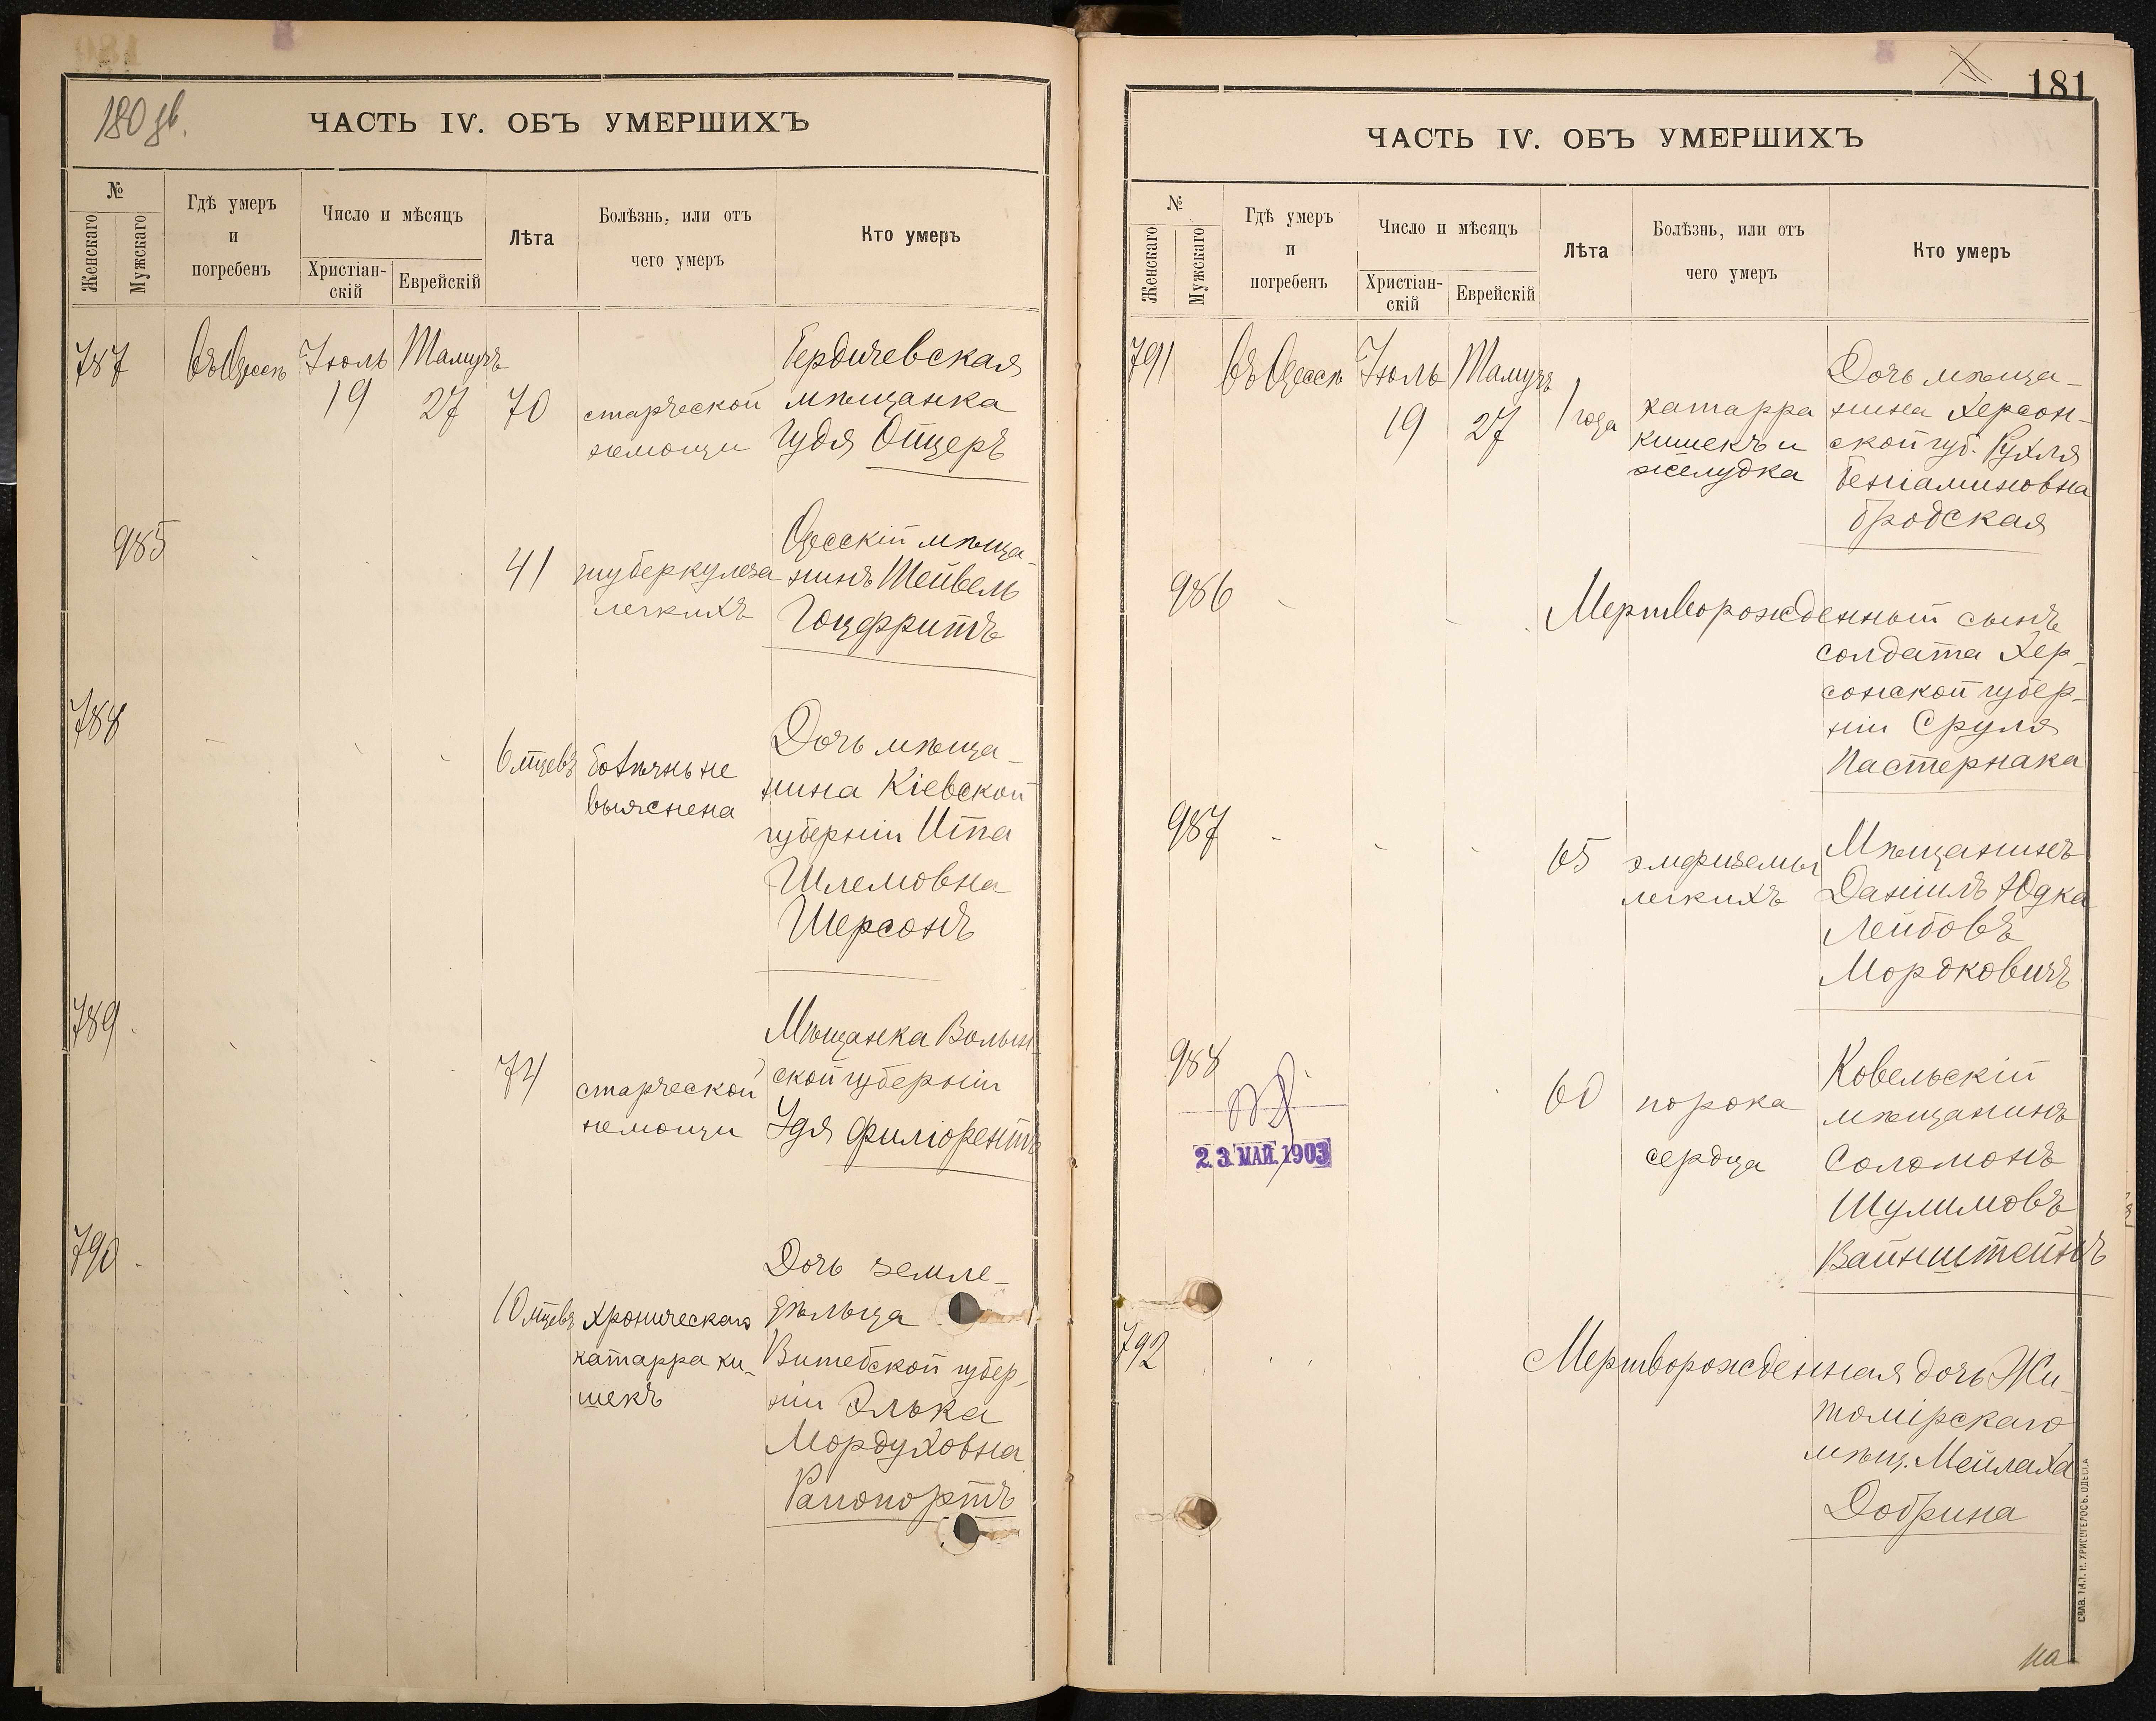 180 зв.
ЧАСТЬ IV. ОБЪ УМЕРШИХЪ
№
Женскаго
Мужскаго
Гдѣ умеръ
и
погребенъ
Число и мѣсяцъ
Христіан-
скій
Еврейскій
Лѣта
Болѣзнь, или отъ
чего умеръ
Кто умеръ
787 Въ Одессѣ Іюль Тамузъ Бердичевская
19 27 70 старческой мѣщанка
немощи Гудя Опцеръ
985 Одесскій мѣща-
41 туберкулеза нинъ Шейвель
легкихъ Гоцфритъ
788 Дочь мѣща-
6 мѣцевъ болѣзнь не нина Кіевской
выяснена губерніи Ита
Шлемовна
Шерсонъ
789 Мѣщанка Волын-
74 старческой ской губерніи
немощи Удя
790 Дочь земле-
10 мѣцевъ хроническаго дѣльца
катарра ки- Витебской губер-
шекъ ніи Элька
Мордуховна
Рапопортъ
181
ЧАСТЬ IV. ОБЪ УМЕРШИХЪ
№
Женскаго
Мужскаго
Гдѣ умеръ
и
погребенъ
Число и мѣсяцъ
Христіан-
скій
Еврейскій
Лѣта
Болѣзнь, или отъ
чего умеръ
Кто умеръ
791 Въ Одессѣ Іюль Тамузъ Дочь мѣща-
19 27 1 года катарра нина Херсон-
кишекъ и ской губ. Рухля
желудка Беніаминовна
Бродская
986 Мертворожденный сынъ
солдата Хер-
сонской губер-
ніи Сруля
Пастернака
987 Мѣщанинъ
65 эмфиземы Даніилъ Юдка
легкихъ Лейбовъ
Мордковичъ
988 Ковельскій
60 порока мѣщанинъ
23 МАЙ. 1903
сердца Соломонъ
Шулимовъ
Вайнштейнъ
792 Мертворожденная дочь Жи-
томірскаго
мѣщ. Мейлаха
Добрина